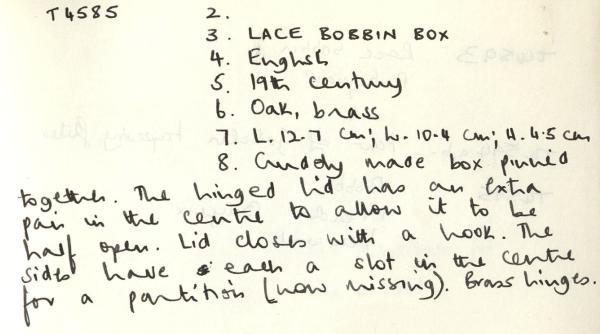 T4585 2.
3. LACE BOBBIN BOX
4. English
5. 19th century
6. Oak, brass
7. L. 12.7 cm; W. 10.4 cm; H. 4.5 cm
8. Crudely made box pinned
together. The hinged lid has an extra
pair in the centre to allow it to be
half open. Lid closes with a hook. The
sides have each a slot in the centre
for a partition (now missing). Brass hinges.